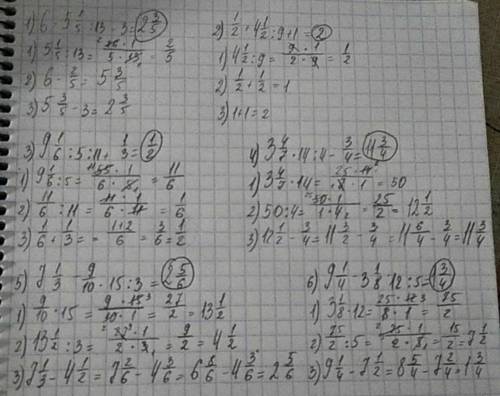 1) 6 - 5 1/5 : 13 - 3 = 2 3/5
1) 5 1/5 : 13 = 26 · 1 / 5 · 13 = 2/5
2) 6 - 2/5 = 5 3/5
3) 5 3/5 - 3 = 2 3/5
2) 1/2 + 4 1/2 : 9 + 1 = 2
1) 4 1/2 : 9 = 9 · 1 / 2 · 9 = 1/2
2) 1/2 + 1/2 = 1
3) 1 + 1 = 2
3) 9 1/6 : 5 : 11 + 1/3 = 1/2
1) 9 1/6 : 5 = 55 · 1 / 6 · 5 = 11/6
2) 11/6 : 11 = 11 · 1 / 6 · 11 = 1/6
3) 1/6 + 1/3 = = 1+2 / 6 = 3/6 = 1/2
4) 3 4/7 · 14 : 4 - 3/4 = 11 3/4
1) 3 4/7 · 14 = 25 · 14 / 7 · 1 = 50
2) 50 : 4 = 50 · 1 / 1 · 4 = 25/2 = 12 1/2
3) 12 1/2 - 3/4 = 11 3/2 - 3/4 = 11 6/4 - 3/4 = 11 3/4
5) 7 1/3 - 9/10 · 15 : 3 = 2 5/6
1) 9/10 · 15 = 9 · 15 / 10 · 1 = 27/2 = 13 1/2
2) 13 1/2 : 3 = 27 · 1 / 2 · 3 = 9/2 = 4 1/2
3) 7 1/3 - 4 1/2 = 7 2/6 - 4 3/6 = 6 8/6 - 4 3/6 = 2 5/6
6) 9 1/4 - 3 1/8 · 12 : 5 = 1 3/4
1) 3 1/8 · 12 = 25 · 12 / 8 · 1 = 75/2
2) 75/2 : 5 = 75 · 1 / 2 · 5 = 15/2 = 7 1/2
3) 9 1/4 - 7 1/2 = 8 5/4 - 7 2/4 = 1 3/4